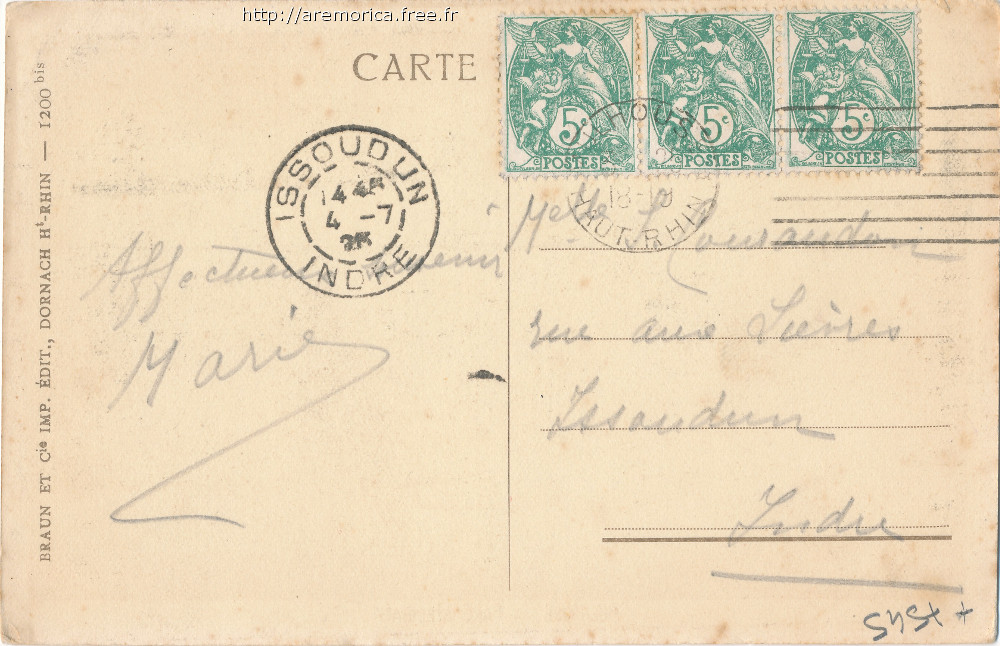 http://aremorica.free.fr
CARTE
BRAUN ET Cie IMP. ÉDIT., DORNACH Ht-RHIN — 1200 bis
5c
POSTES
5c
POSTES
5c
POSTES
ISSOUDUN
14 45
4 -7
25
INDRE
18-19
HAUT-RHIN
Affectueux souvenir
Marie
Melle
rue aux
Issoudun
Indre